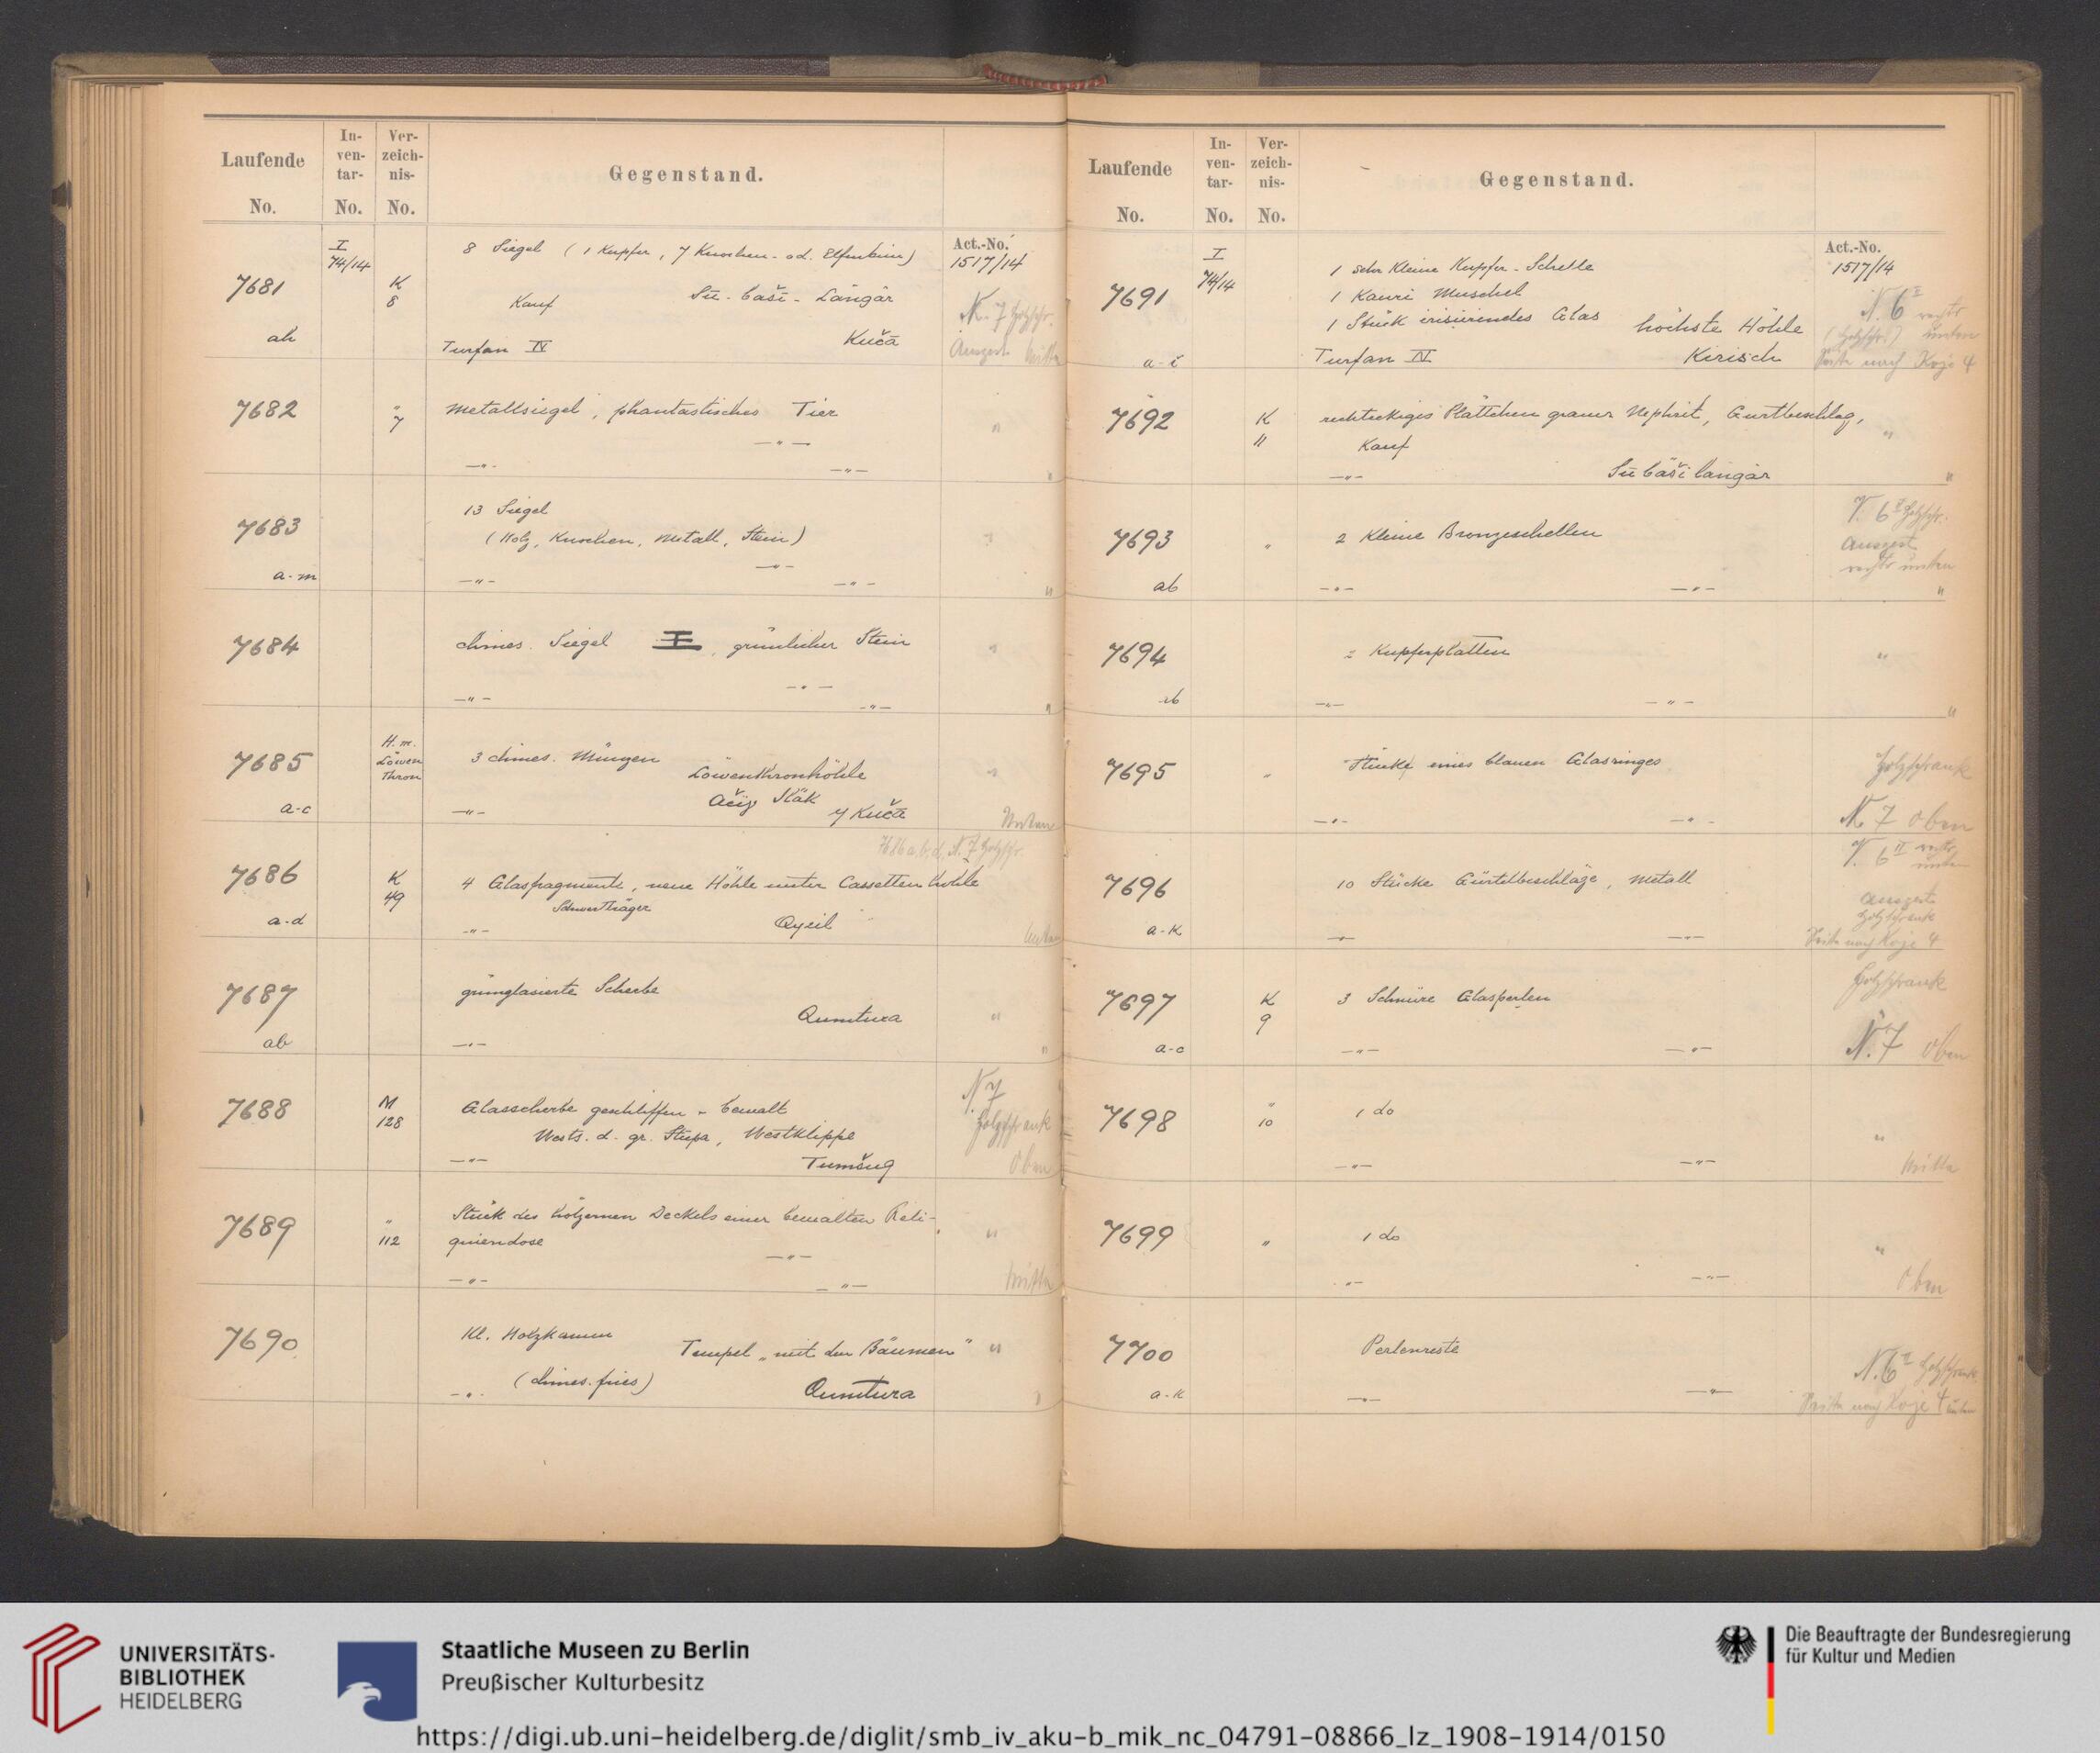 Laufende No.
In-ven-tar-No.
Ver-zeich-nis-No.
Gegenstand.
I 74/14
8 Siegel (1 Kupfer, 7 Knochen- od. Elfenbein)
Act.-No. 1517/14
7681
K 8
Kauf
Su-baši-Längär
N. 7 Holzschr.
ah
Turfan IV
Kučā
Ausgest. Mitte
7682
" 7
Metallsiegel, phantastisches Tier
"
—"—
—"—
—"—
"
13 Siegel
7683
(Holz, Knochen, Metall, Stein)
"
—"—
a-m
—"—
—"—
"
7684
chines. Siegel
grünlicher Stein
"
—"—
—"—
—"—
"
7685
H. m. Löwen Thron
3 chines. Münzen
Löwenthronhöhle
"
a-c
—"—
Kučā
Unten
7686 a, b, d, N. 7 Holzschr.
7686
K 49
4 Glasfragmente, neue Höhle unter Cassettenhöhle
Schwertträger
a-d
—"—
Qyzil
Unten
7687
grünglasierte Scherbe
Qumtura
"
ab
—"—
"
7688
M 128
Glasscherbe geschliffen u. bemalt
Wests. d. gr. Stupa, Westklippe
N. 7 Holzschrank
—"—
Tumšuq
Oben
7689
" 112
Stück des hölzernen Deckels einer bemalten Reli-
quiendose
"
—"—
—"—
—"—
Mitte
7690
Kl. Holzkamm
Tempel „mit den Bäumen"
"
(chines. fries)
—"—
Qumtura
"
Laufende No.
In-ven-tar-No.
Ver-zeich-nis-No.
Gegenstand.
I 74/14
Act.-No. 1517/14
7691
1 sehr kleine Kupfer-Schelle
1 Kauri Muschel
1 Stück irisierendes Glas
höchste Höhle
N. 6 II rechts
(Holzschr.) unten
a-c
Turfan IV
Kirisch
Seite nach Koje 4
7692
K 11
rechteckiges Plättchen grauer Nephrit, Gurtbeschlag,
"
Kauf
—"—
Su bāši längär
"
7693
"
2 kleine Bronzeschellen
N. 6 II Holzschr.
Ausgest.
rechts unten
ab
—"—
—"—
"
7694
2 Kupferplatten
"
ab
—"—
—"—
"
7695
"
Stücke eines blauen Glasringes
Holzschrank
—"—
—"—
N. 7 oben
7696
10 Stücke Gürtelbeschläge, Metall
N. 6 II rechts unten
Ausgest.
Holzschrank
a-k
—"—
—"—
Seite nach Koje 4
7697
K 9
3 Schnüre Glasperlen
Holzschrank
a-c
—"—
—"—
N. 7 Oben
7698
" 10
1 do
"
—"—
—"—
Mitte
7699
"
1 do
"
—"—
—"—
Oben
7700
Perlenreste
N. 6 II Holzschrank
a-k
—"—
—"—
Seite nach Koje 4 unten
UNIVERSITÄTS-
BIBLIOTHEK
HEIDELBERG
Staatliche Museen zu Berlin
Preußischer Kulturbesitz
Die Beauftragte der Bundesregierung
für Kultur und Medien
https://digi.ub.uni-heidelberg.de/diglit/smb_iv_aku-b_mik_nc_04791-08866_lz_1908-1914/0150